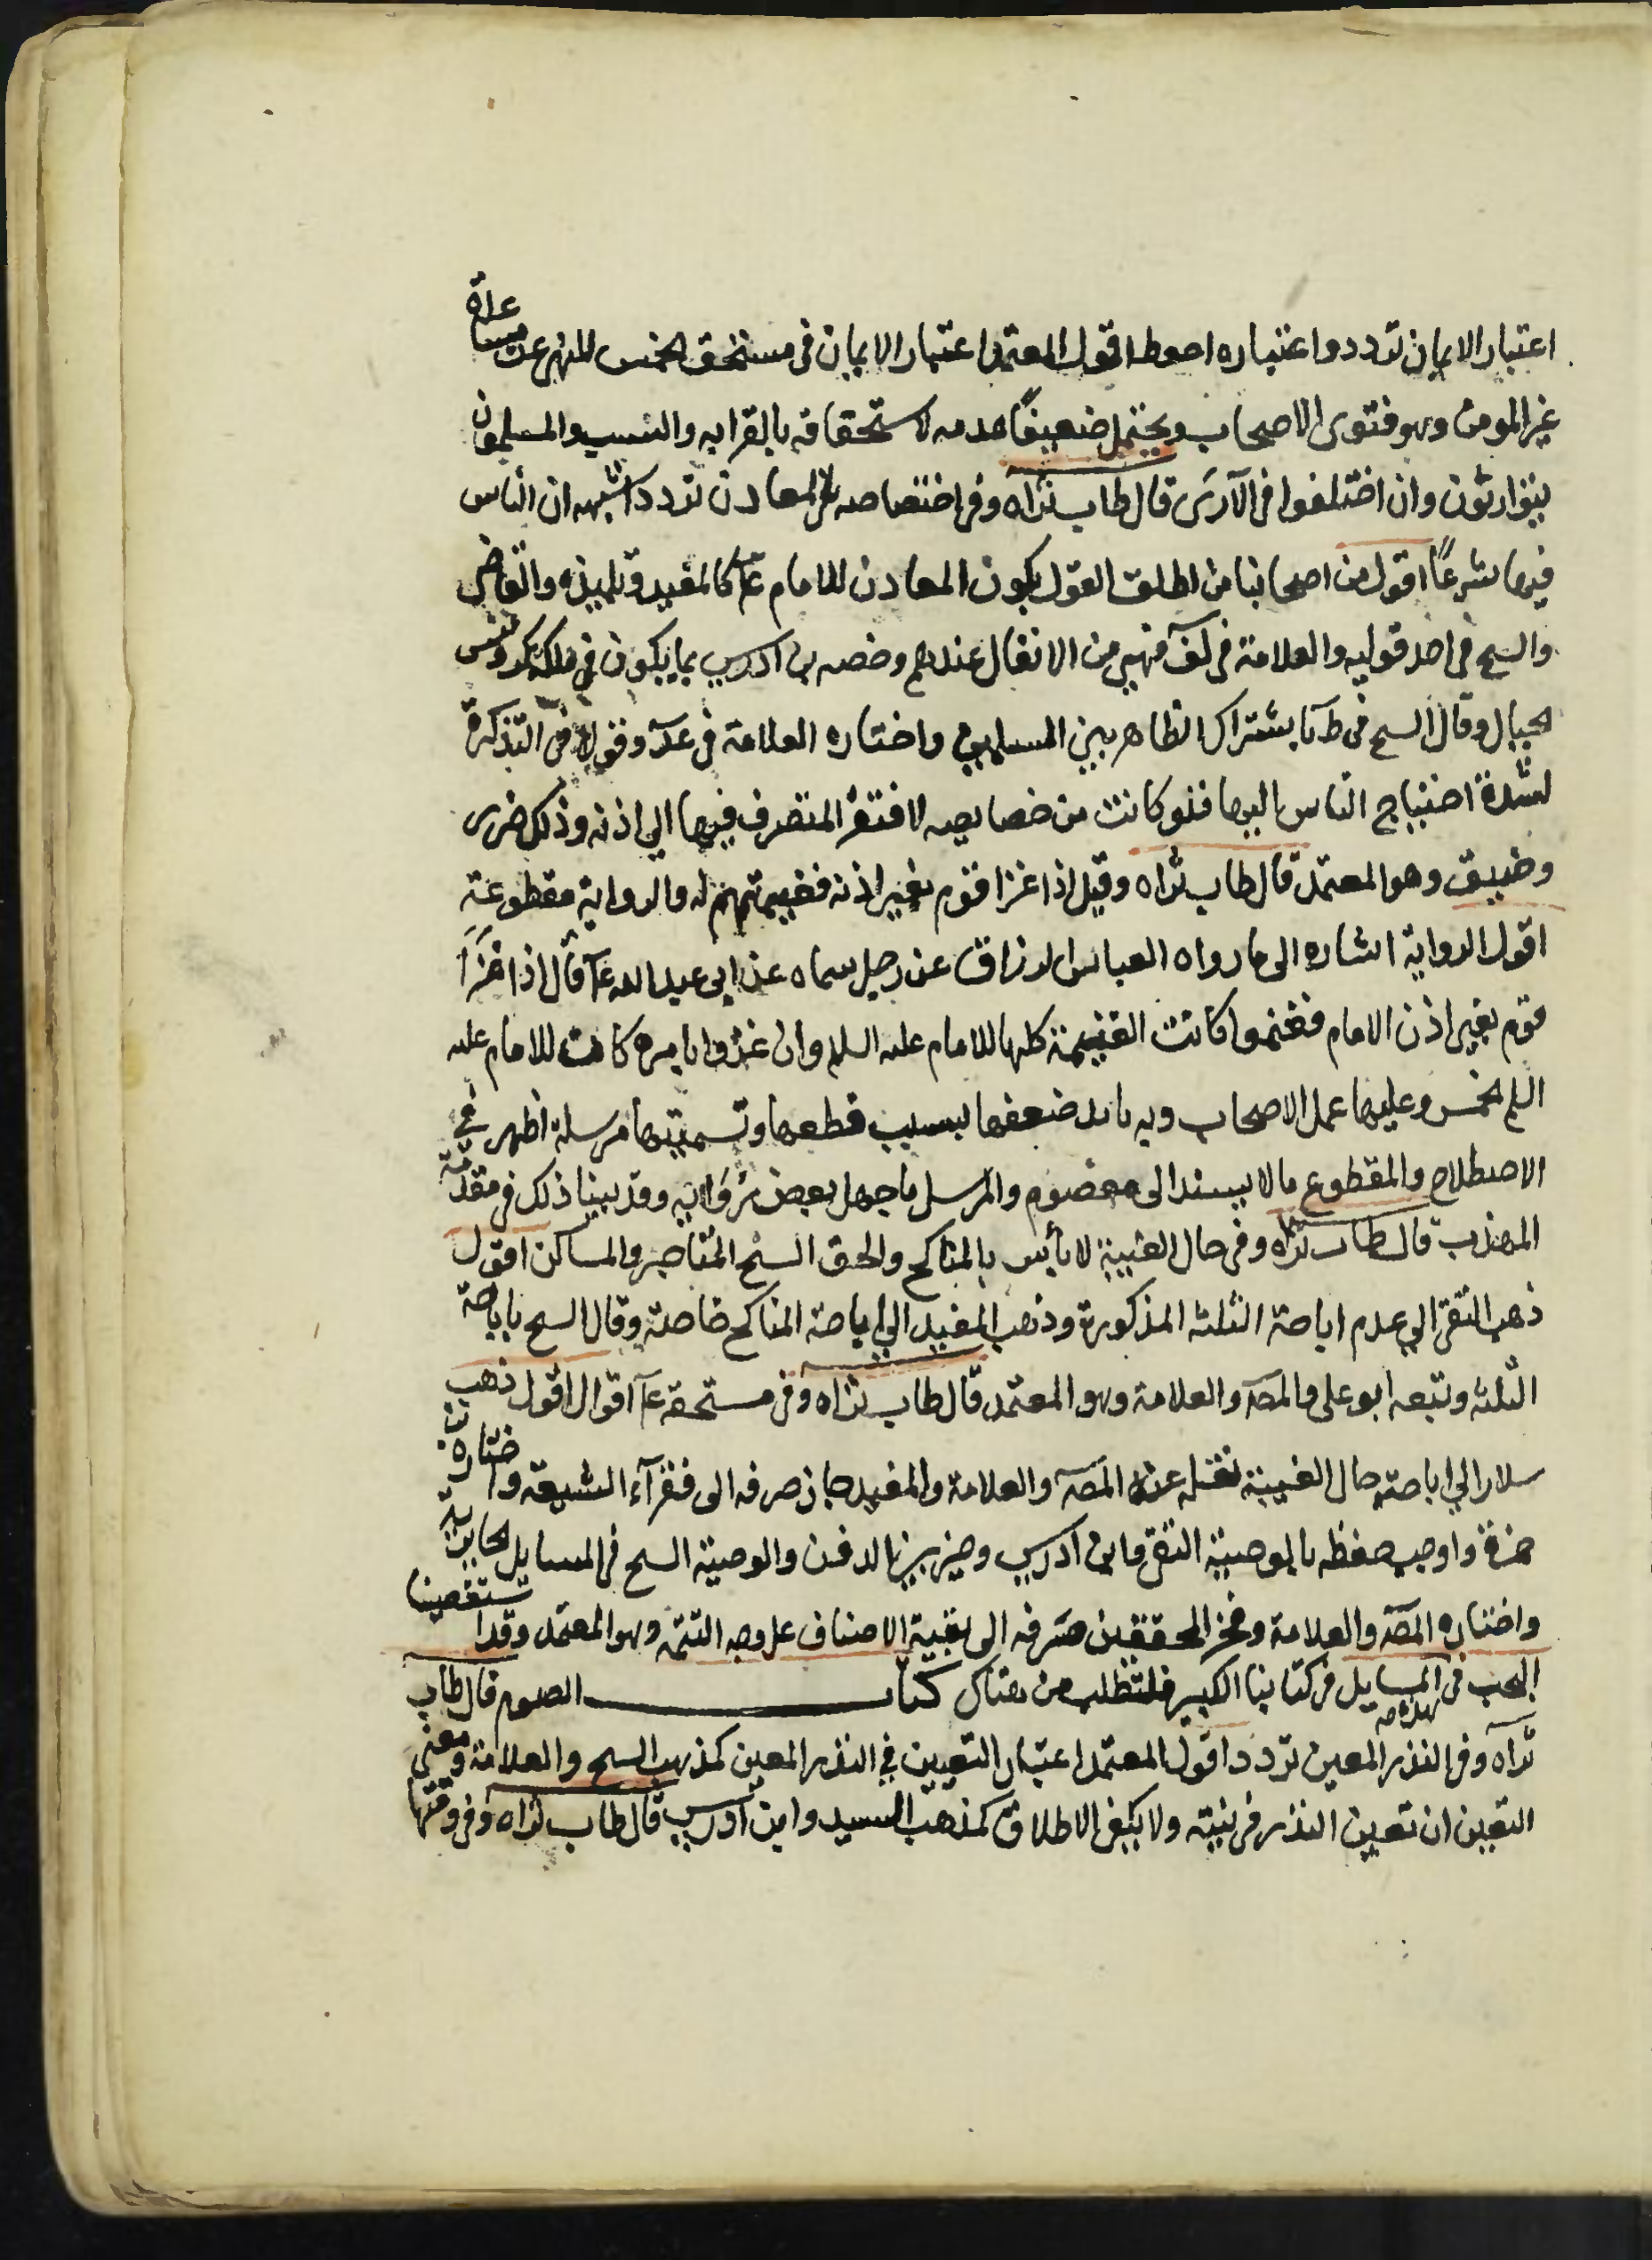 اعتبار الايمان تردد واعتباره احوط اقول المعتمد اعتبار الايمان في مستحق الخمس للنهي عن مساعدة
غير المومن وهو فتوى الاصحاب ويحتمل ضعيفًا عدمه لاستحقاقه بالقرابه والنسب والمسلمون
يتوارثون وان اختلفوا في الآرى قال طاب ثراه وفي اختصاصه بالمعادن تردد اشبهه ان الناس
فيها شرعًا اقول من اصحابنا من اطلق القول بكون المعادن للامام عم كالمفيد وتلميذه والقاضي
والسح في احد قوليه والعلامة في لف فهي من الانفال عندهم وخصه بن ادريس بما يكون في ملكه كرؤس
الجبال وقال السح في ط باشتراك الظاهر بين المسلمين واختاره العلامة في عد وقوله في التذكرة
لشدة احتياج الناس اليها فلو كانت من خصايصه لافتقر المتصرف فيها الي اذنه وذلك ضرر
وضيق وهو المعتمد قال طاب ثراه وقيل اذا غزا قوم بغير اذنه فغنيمتهم له والرواية مقطوعة
اقول الرواية اشاره الى ما رواه العباس الوراق عن رجل سماه عن ابي عبد الله عم قال اذا غزا
قوم بغير اذن الامام فغنموا كانت الغنيمة كلها للامام عليه السلم وان غزوا بامره كانت للامام عليه
السلم الخمس وعليها عمل الاصحاب وبه باد ضعفها لسبب قطعها وتسميتها مرسلة اظهر في
الاصطلاح والمقطوع ما لا يسند الى معصوم والمرسل ما جهل بعض رواته وقد بينا ذلك في مقدمة
المهذب قال طاب ثراه وفي حال الغيبة لا باس بالمناكح والحق السح المتاجر والمساكن اقول
ذهب التقي الي عدم اباحة الثلثه المذكورة وذهب المفيد الي اباحة المناكح خاصة وقال السح باباحة
الثلثه وتبعه ابو على والمصه والعلامة وهو المعتمد قال طاب ثراه وفي مستحقه عم اقوال اقول ذهب
سلار الي اباحته حال الغيبة نقله عنه المصه والعلامة والمفيد جاز صرفه الى فقرآء الشيعة واختاره بن
حمزة واوجب حفظه بالوصية التقي وابن ادريس وخير بين الدفن والوصية السح في المسايل الحايرية
واختاره المصه والعلامة وفخر المحققين صرفه الى بقية الاصناف على وجه التتمة وهو المعتمد وقد استقصينا
البحث في هذه المسايل في كتابنا الكبير فلتطلب من هناك كتاب الصوم قال طاب
ثراه وفي النذر المعين تردد اقول المعتمد اعتبار التعيين في النذر المعين كمذهب السح والعلامة ومعنى
التعين ان تعين النذر في نيته ولا يكفى الاطلاق كمذهب السيد وابن ادريس قال طاب ثراه وفي وقتها